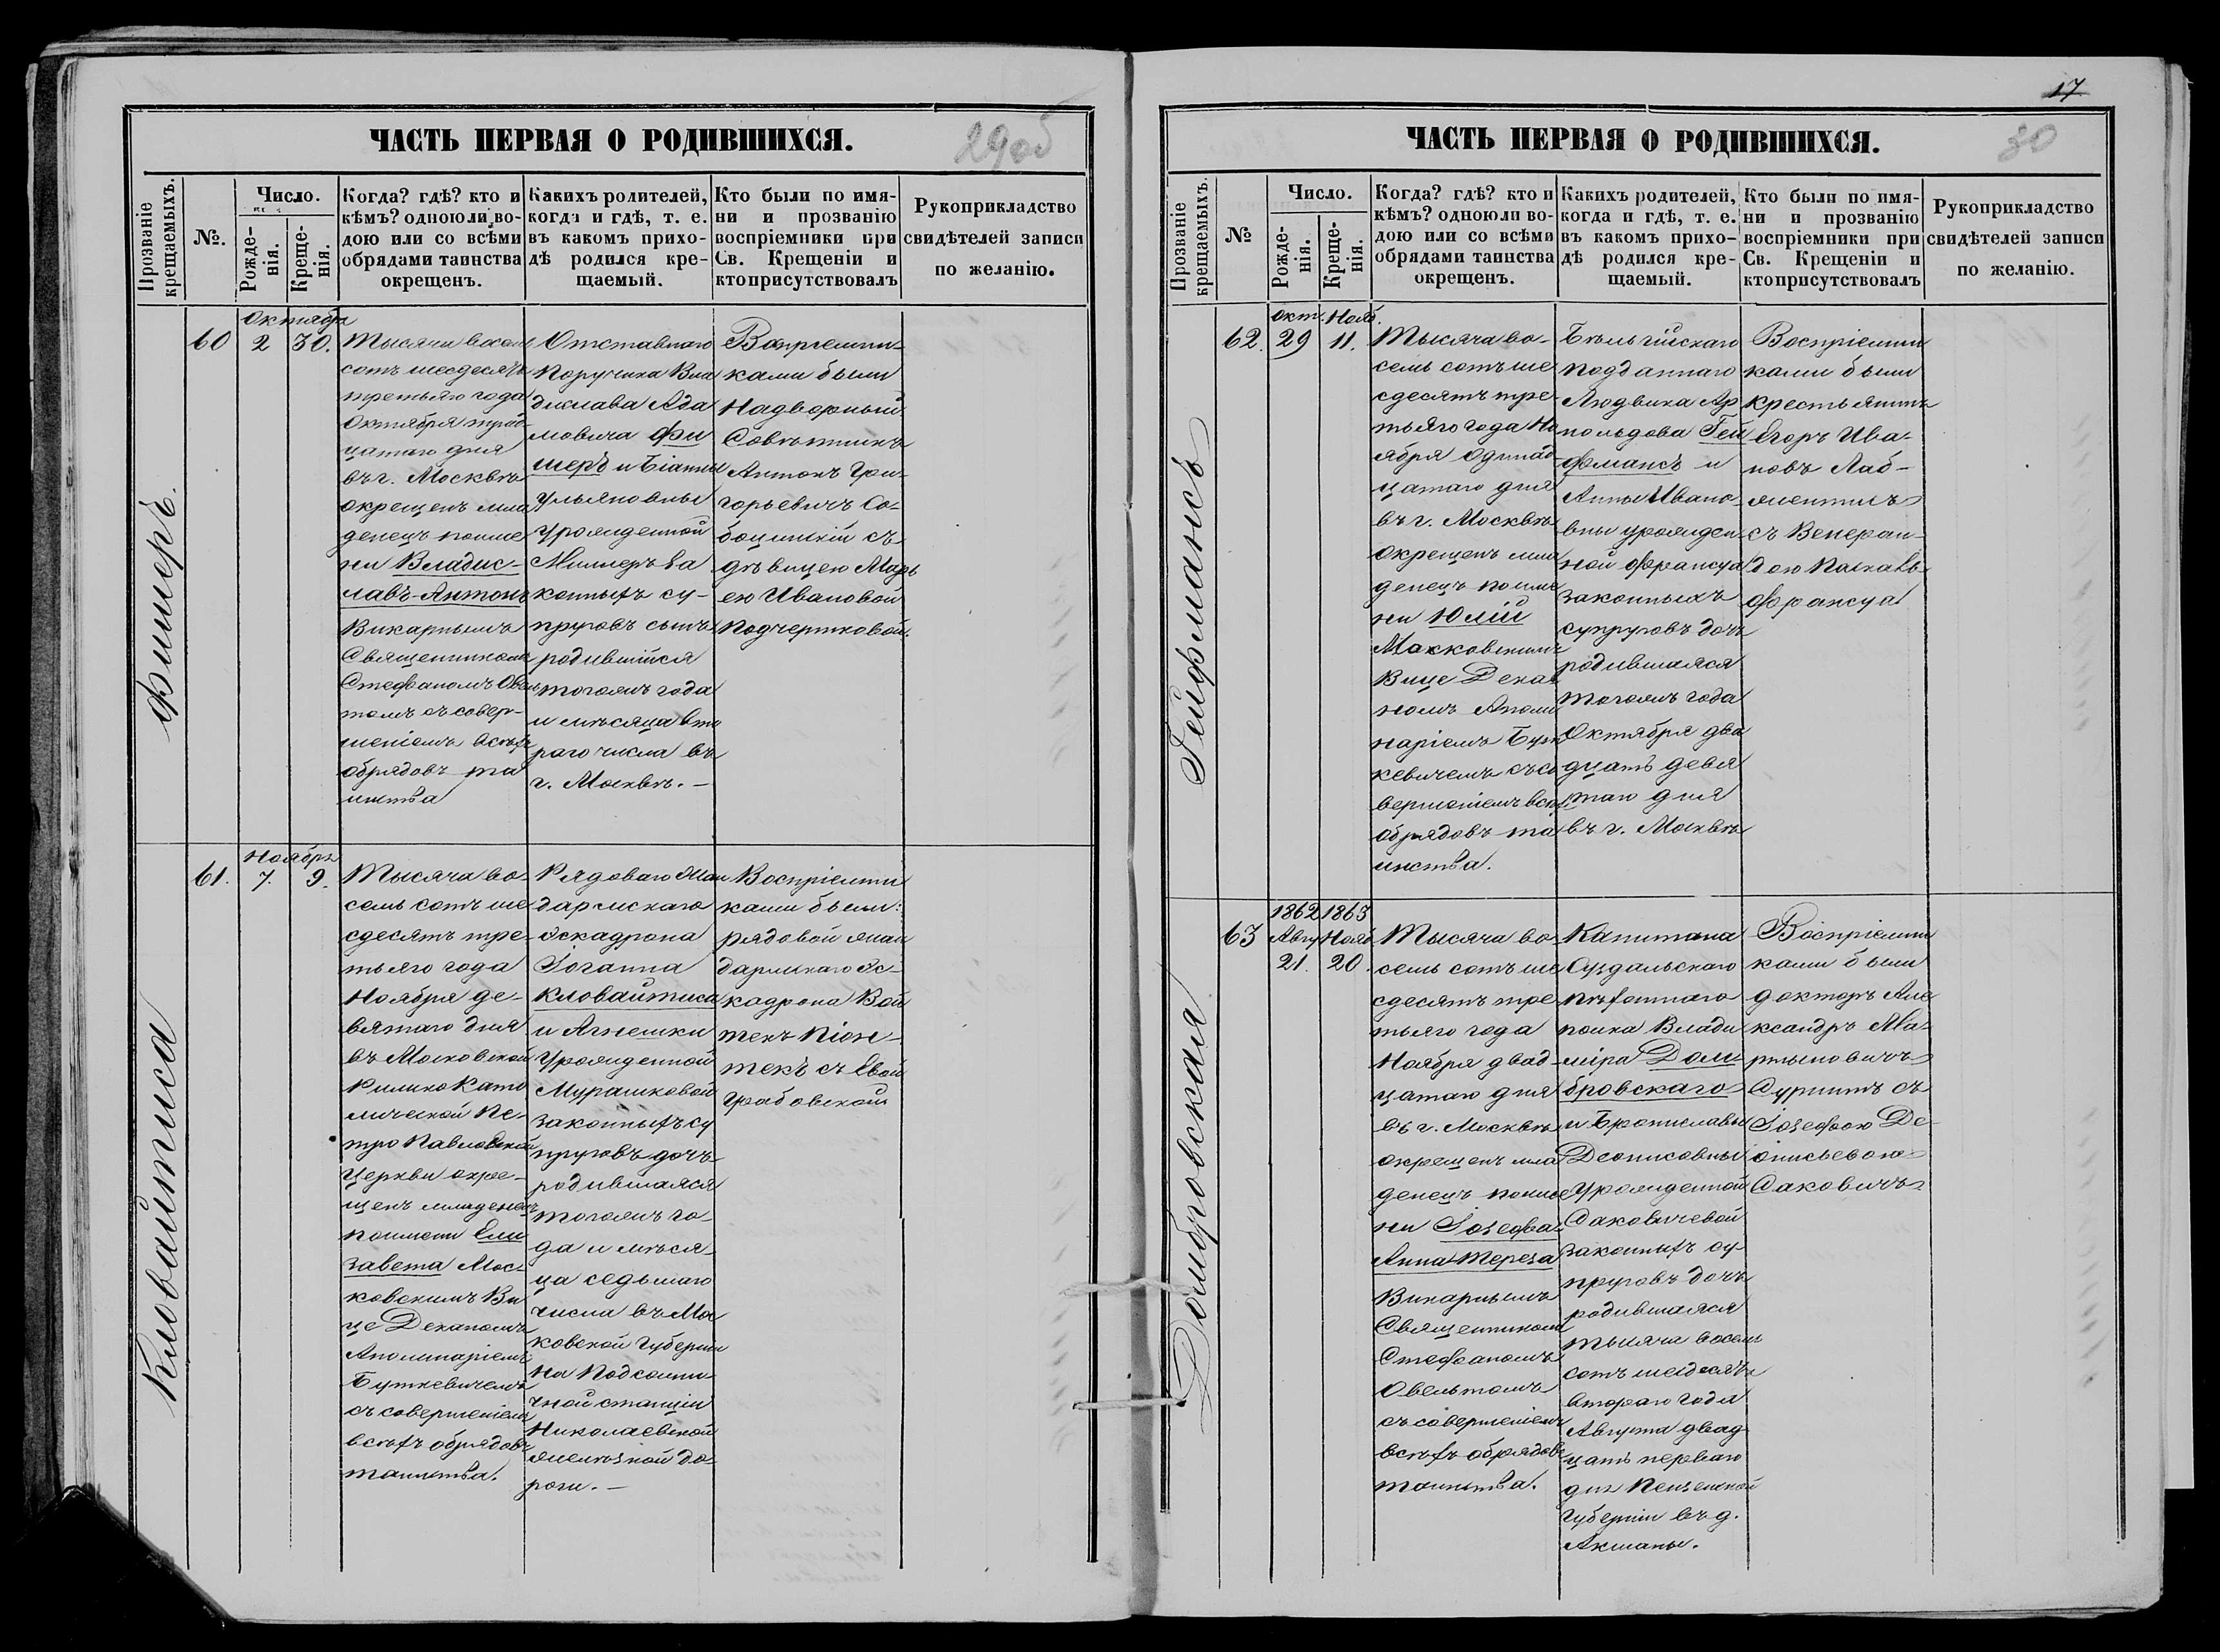 ЧАСТЬ ПЕРВАЯ О РОДИВШИХСЯ.
29об
Прозваніе крещаемыхъ.
№.
Число.
Рожденія.
Крещенія.
Когда? гдѣ? кто и
кѣмъ? одною ли во-
дою или со всѣми
обрядами таинства
окрещенъ.
Какихъ родителей,
когда и гдѣ, т. е.
въ какомъ прихо-
дѣ родился кре-
щаемый.
Кто были по имя-
ни и прозванію
воспріемники при
Св. Крещеніи и
кто присутствовалъ
Рукоприкладство
свидѣтелей записи
по желанію.
Фишеръ.
60
Октября
2 30.
Тысяча восемь
сотъ шесдесятъ
третьяго года
Октября трид-
цатаго дня
въ г. Москвѣ
окрещенъ мла
денецъ по име
ни Владис-
лавъ-Антонъ
Викарнымъ
Священникомъ
Стефаномъ Овель
томъ съ совер-
шеніемъ всѣхъ
обрядовъ та
инства
Отставнаго
Поручика Вла
дислава Ада
мовича Фи
шеръ и Біанны
Ульяновны
Урожденной
Миллеръ за
конныхъ су-
пруговъ сынъ
родившійся
тогожъ года
и мѣсяца вто
раго числа въ
г. Москвѣ. —
Воспріемни-
ками были
Надворный
Совѣтникъ
Антонъ Гри-
горьевичъ Со-
боцинскій съ
дѣвицею Марь
ею Ивановой
Подчертковой.
Кловайтиса
61.
Ноября
7. 9.
Тысяча во-
семь сотъ ше
сдесятъ тре-
тьяго года
Ноября де-
вятаго дня
въ Московской
Римско Като
лической Пе-
тро Павловской
Церкви окре-
щенъ младенецъ
по имени Ели
завета Мос-
ковскимъ Ви
це Деканомъ
Аполинаріемъ
Буткевичемъ
съ совершеніемъ
всѣхъ обрядовъ
таинства.
Рядоваго Жан
дармскаго
Эскадрона
Іоганна
Кловайтиса
и Агнешки
Урожденной
Мурашковой
законныхъ су
пруговъ дочь
родившаяся
тогожъ го-
да и мѣся-
ца седьмаго
числа въ Мос
ковской Губерніи
на Подсолни
чной станціи
Николаевской
желѣзной до-
роги. —
Воспріемни
ками были:
рядовой жан
дармскаго Эс-
кадрона Вой
техъ Піон-
текъ съ Евой
Грабовской
17
ЧАСТЬ ПЕРВАЯ О РОДИВШИХСЯ.
30
Прозваніе крещаемыхъ.
№
Число.
Рожденія.
Крещенія.
Когда? гдѣ? кто и
кѣмъ? одною ли во-
дою или со всѣми
обрядами таинства
окрещенъ.
Какихъ родителей,
когда и гдѣ, т. е.
въ какомъ прихо-
дѣ родился кре-
щаемый.
Кто были по имя-
ни и прозванію
воспріемники при
Св. Крещеніи и
кто присутствовалъ
Рукоприкладство
свидѣтелей записи
по желанію.
Гейфмансъ
62.
Окт. Нояб.
29 11.
Тысяча во-
семь сотъ ше
сдесятъ тре-
тьяго года Но
ября Одинад-
цатаго дня
въ г. Москвѣ
окрещенъ мла
денецъ по име
ни Юлій
Московскимъ
Вице Дека
номъ Аполи
наріемъ Бут
кевичемъ съ со
вершеніемъ всѣхъ
обрядовъ та
инства.
Бельгійскаго
подданнаго
Людвика Ар
польдова Гей
фмансъ и
Анны Ивано
вны урожден-
ной Франсуа
законныхъ
супруговъ дочь
родившаяся
тогожъ года
Октября два
дцать девя
таго дня
въ г. Москвѣ
Воспріемни
ками были
крестьянинъ
Егоръ Ива-
новъ
съ Венеран-
дою
Франсуа
Домбровская
63
1862 1863
Авгу Нояб
21. 20.
Тысяча во-
семь сотъ ше
сдесятъ тре
тьяго года
Ноября двад-
цатаго дня
въ г. Москвѣ
окрещенъ мла
денецъ по име
ни Іозефа-
Анна Тереза
Викарнымъ
Священникомъ
Стефаномъ
Овельтомъ
съ совершеніемъ
всѣхъ обрядовъ
таинства.
Капитана
Суздальскаго
пѣхотнаго
полка Влади
міра Дом-
бровскаго
и Брониславы
Деонисовны
Урожденной
Саковичевой
законныхъ су-
пруговъ дочь
родившаяся
тысяча восемь
сотъ шесдесятъ
втораго года
Августа двад
цать перваго
дня Пензенской
Губерніи въ д.
Акшаны.
Воспріемни
ками были
докторъ Але
ксандръ Ма-
ртыновичъ
Суринтъ съ
Іозефою Де-
онисьевою
Саковичъ